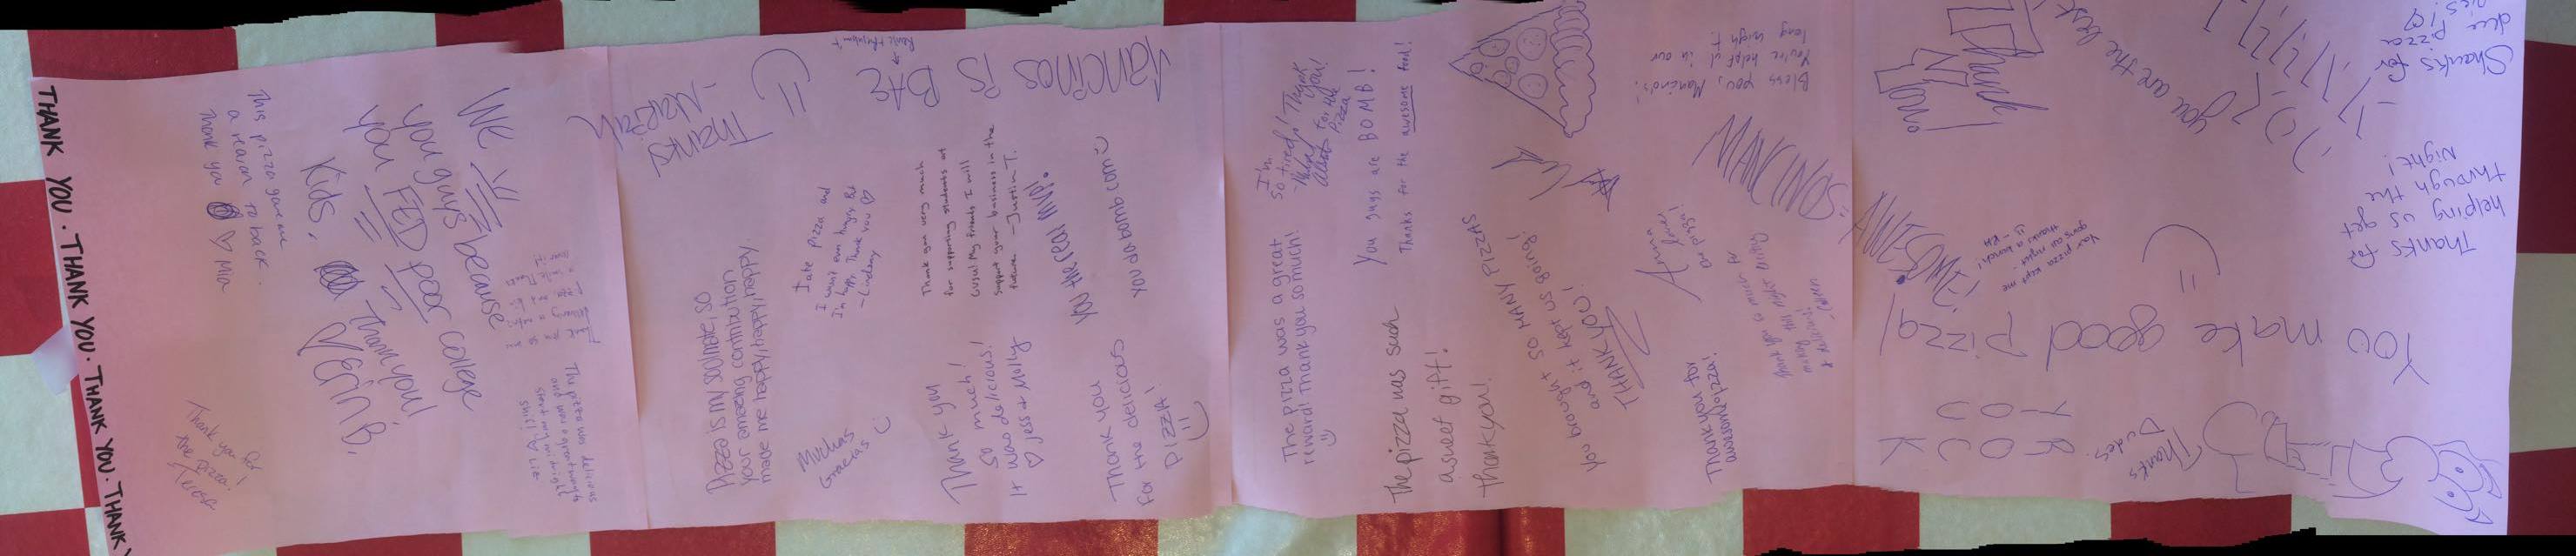 THANK YOU. THANK YOU. THANK YOU. THANK YOU. THANK
This pizza gave me
a reason to back.
Thank you ♡ Mia
Thank you for
the pizza!
Teresa
WE
you guys because
you FED poor college
Kids. Thank you!
♡ ERIN B.
The pizza was delicious
THANKS
-MARIAH
Pizza is my soulmate, so
your amazing contribution
made me happy, happy, happy.
Muchas
Gracias
I ate pizza and
I wasn't even hungry. But
I'm happy. Thank you ♡
- Lindsey
Mancinos is
BAE
Thank you very much
for supporting students at
GVSU! My friends & I will
support your business in the
future. -Justin T.
Thank you
so much!
It was delicious!
♡ Jess + Molly
YOU the real MVP!
you da bomb.com
Thank you
for the delicious
PIZZA!
I'm
so tired! Thank
you!
for the
Pizza
The pizza was a great
reward! Thank you so much!
You guys are BOMB!
Thanks for the awesome food!
The pizza was such
a sweet gift!
Thank you!
You brought SO MANY PIZZAS
and it kept us going!
THANK YOU!
Bless you, Mancino's.
You're helpful in our
long night!
MANCINOS
AWESOME!
Anna
loves
pizza!
Thank you for
awesome pizza!
Your pizza kept me
going all night.
thanks a bunch!
- RH
Thank
You!
you are the best
Thanks for
dee pizza
pies!
Thanks for
helping us get
through the
Night!
You make good pizza!
YOU
ROCK
Thanks
Dudes